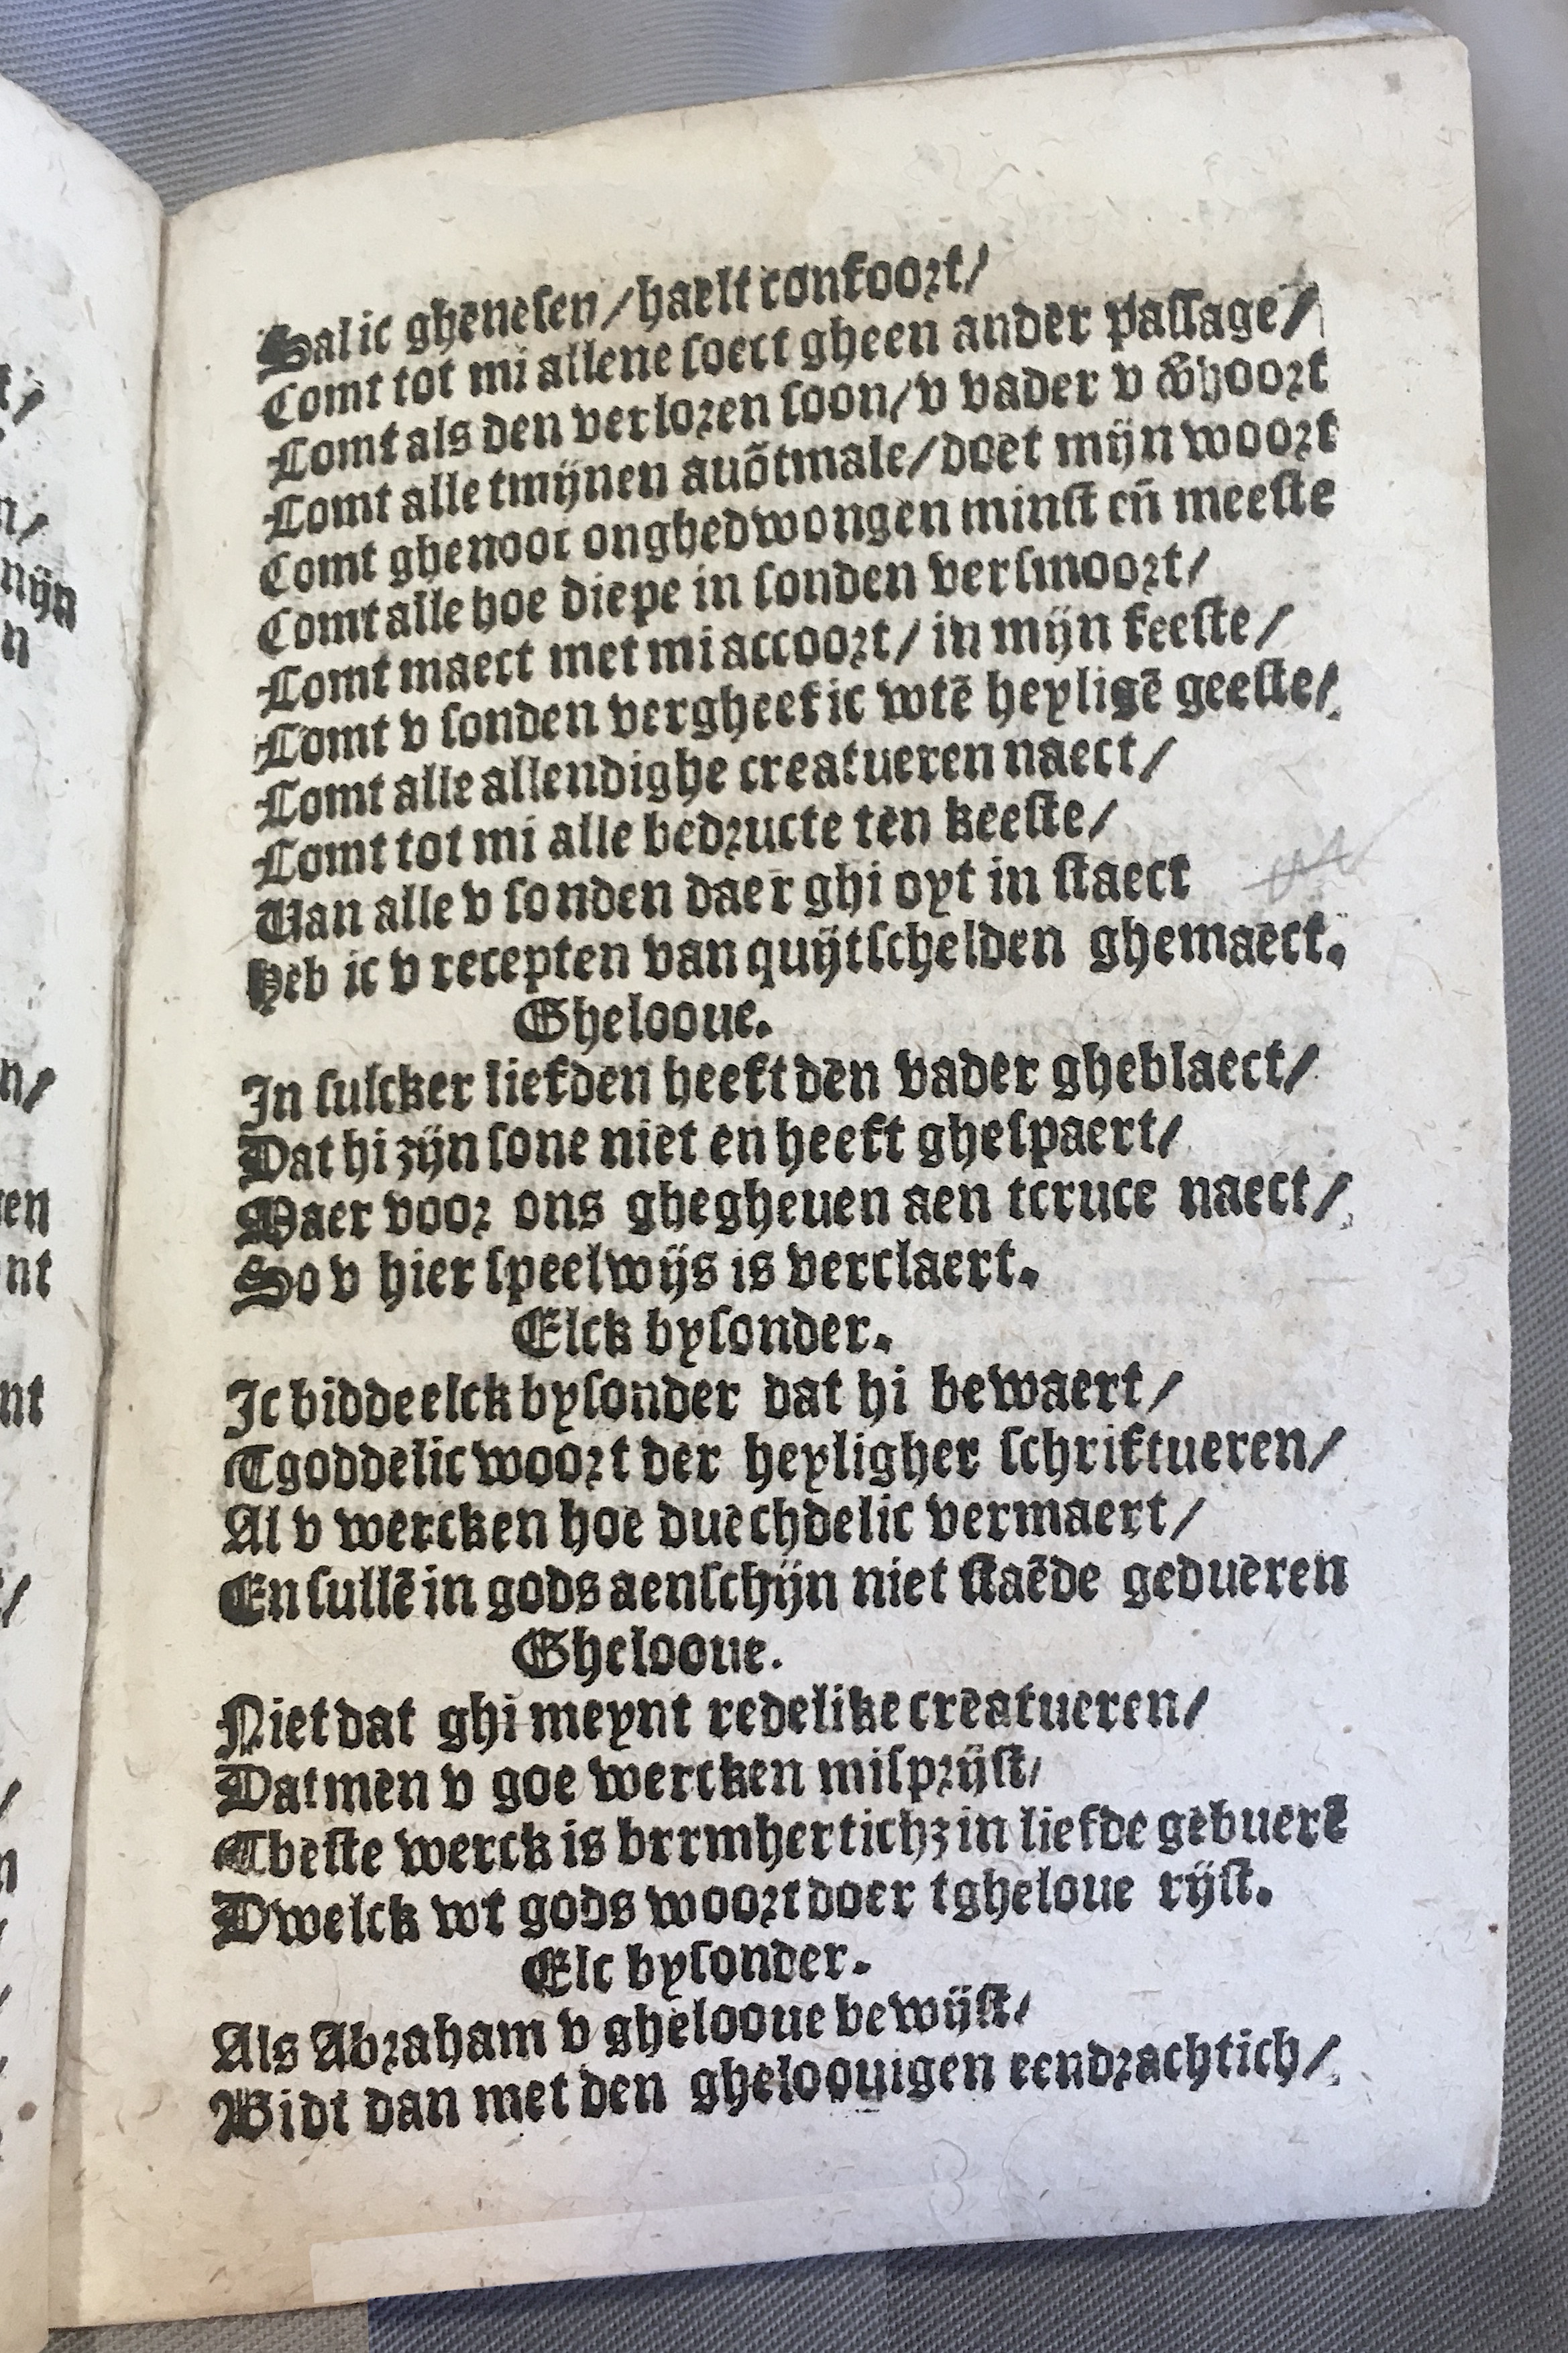 Sal ic ghenesen/haelt confoort/
Comt tot mi allene soect gheen ander passage/
Comt als den verlozen soon/v vader v whoort
Comt alle tmijnen auõtmale/doet mijn woort
Comt ghenoot onghedwongen minst eñ meeste
Comt alle hoe diepe in sonden versmoort/
Comt maect met mi accoort/ in mijn feeste/
Comt v sonden vergheef ic wtē heyligē geeste/
Comt alle allendighe creatueren naect/
Comt tot mi alle bedructe ten keeste/
Van alle v sonden daer ghi oyt in staect
Heb ic v recepten van quijtschelden ghemaect.
Ghelooue.
In sulcker liefden heeft den vader gheblaect/
Dat hi zijn sone niet en heeft ghespaert/
Maer voor ons ghegheuen aen tcruce naect/
So v hier speelwijs is verclaert.
Elck bysonder.
Ic bidde elck bysonder dat hi bewaert/
Tgoddelic woort der heyligher schriftueren/
Al v wercken hoe duechdelic vermaert/
En sullē in gods aenschijn niet staēde gedueren
Ghelooue.
Niet dat ghi meynt redelike creatueren/
Datmen v goe wercken misprijst/
Tbeste werck is brrmhertichz in liefde gebuerē
Dwelck wt gods woort doer tgheloue rijst.
Elc bysonder.
Als Abraham v ghelooue bewijst/
Bidt dan met den gheloouigen eendrachtich/